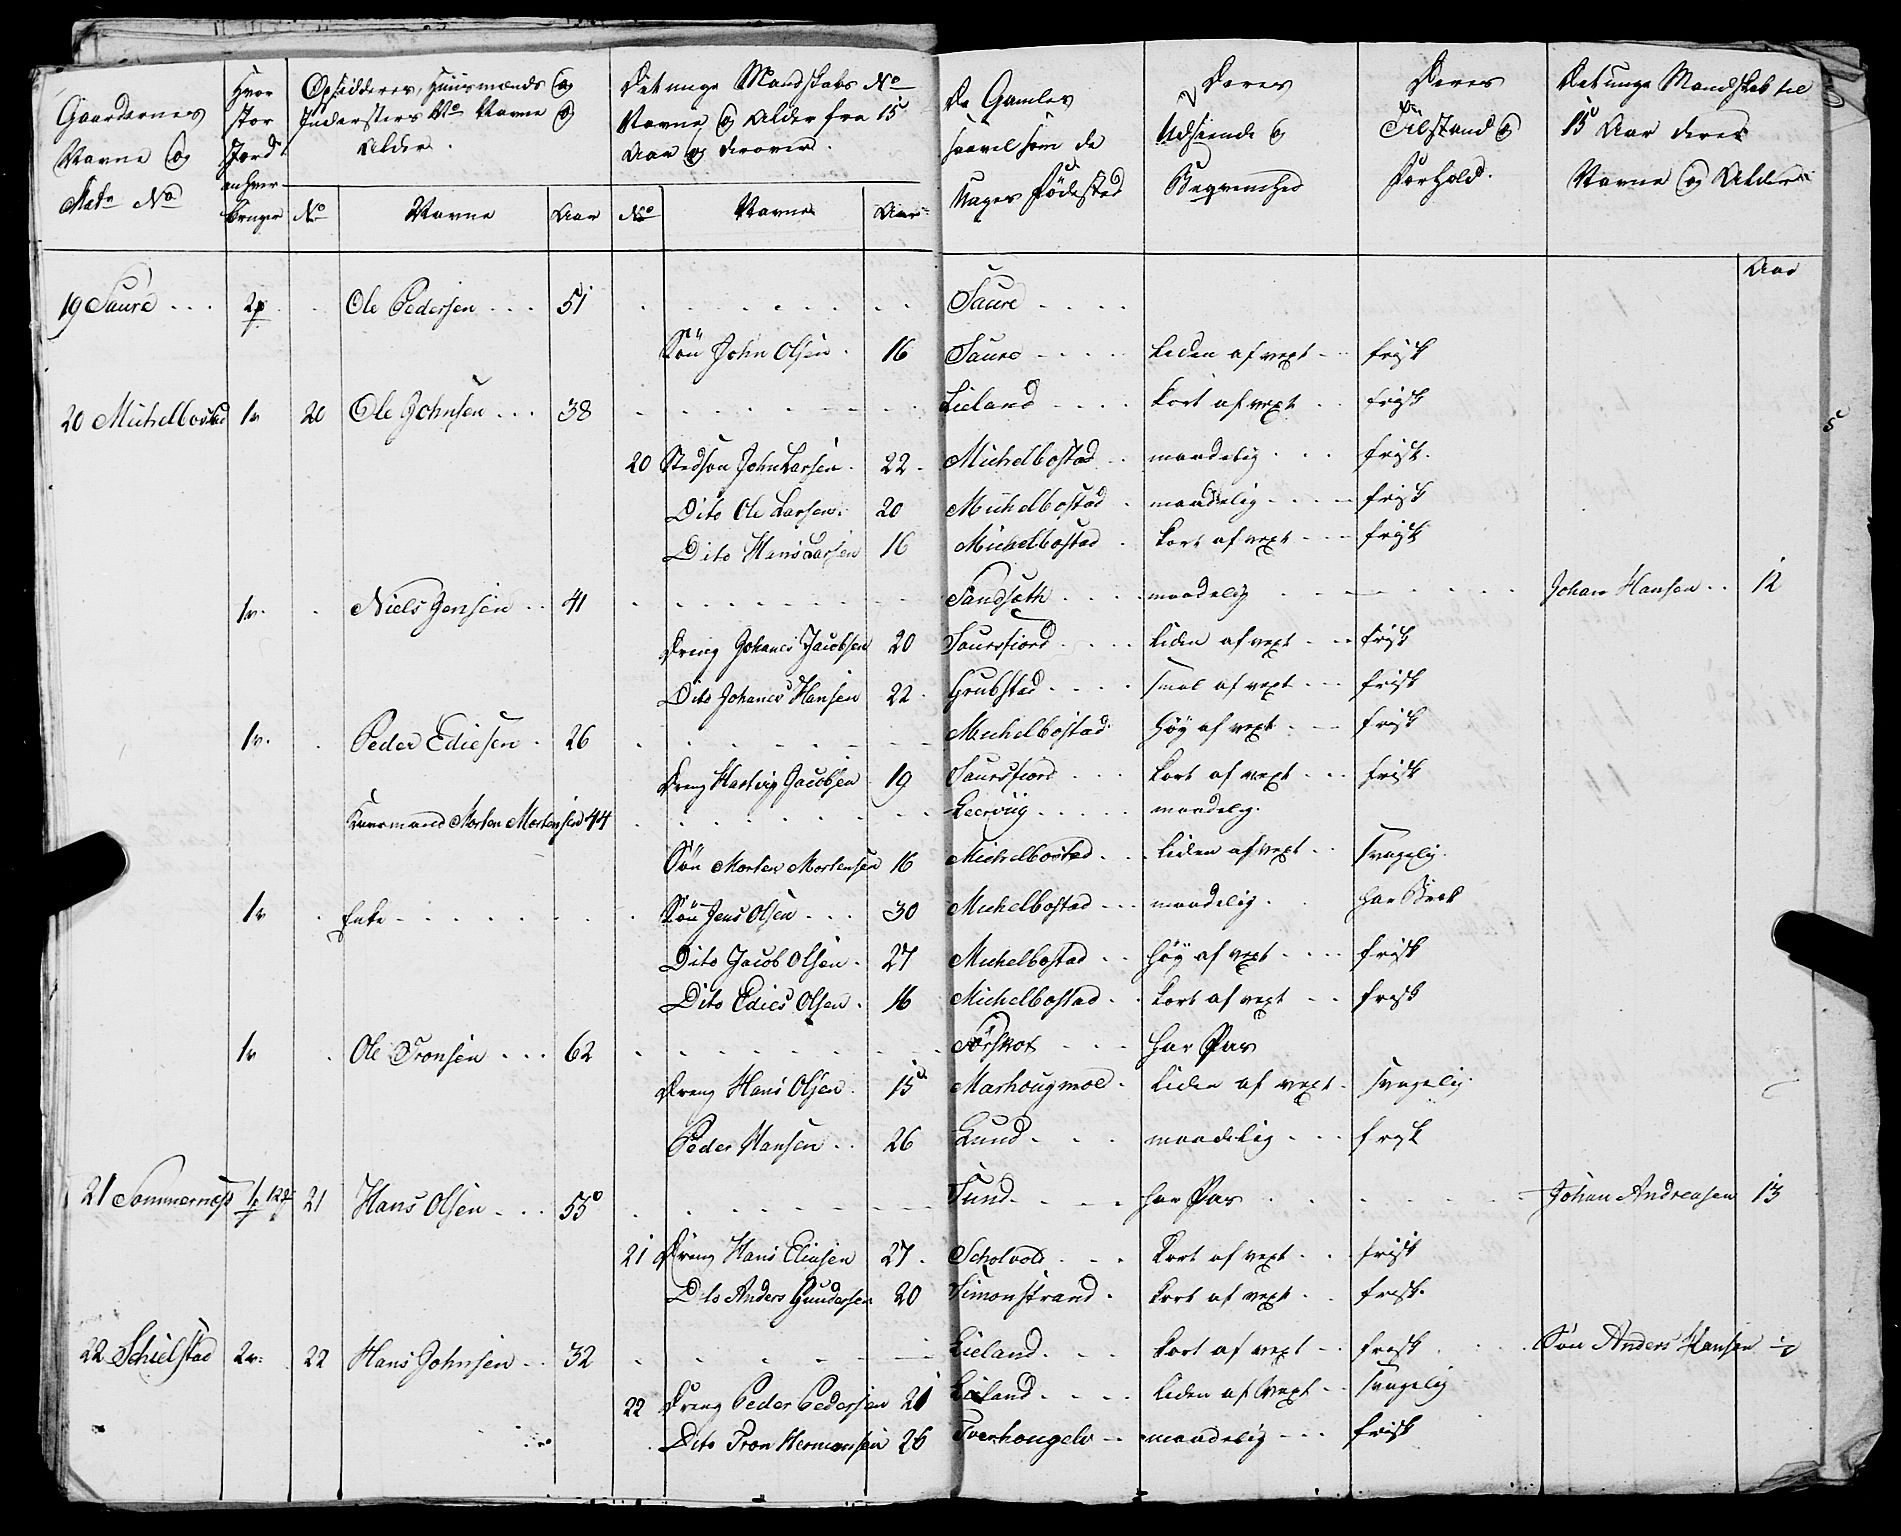 Gaardernes Navne og Matr No
Hvor stor Jord enhver bruger
Opsidderes, Huusmænds og Indersters No Navne og Alder.
Det unge Mandskabs No Navne og Alder fra 15 Aar og derover.
De Gamles saavelsom de Unges Fødested
Deres Udseende og Beqvemhed
Deres Tilstand og Forhold.
Det unge Mandskab til 15 Aar deres Navne og Alder
No Navne Aar No Navne Aar
Aar
19 Saure . . . 2p Ole Pedersen . . . 51 Saure . . . .
Søn John Olsen . 16 Saure . . . . liden af vext . . frisk
20 Michelbostad 1v 20 Ole Johnsen . . . 38 Lieland . . . . kort af vext . . frisk
20 Stedsøn John Larsen . 22 . Michelbostad . . maadelig . . . frisk .
Dito Ole Larsen . 20 Michelbostad . maadelig . . . . frisk
Dito Hans Larsen 16 Michelbostad . kort af vext . . . frisk
1v . . Niels Jensen . . 41 Sandsæth . . . . maadelig . . . Johan Hansen . . 12
Dreng Johanes Jacobsen 20 Saursfiord . . . . liden af vext . . . frisk
Dito Johanes Hansen 22 . Grubstad . . . . smal af vext . . . frisk
1v . . Peder Ediesen . 26 Michelbostad høy af vext . . . frisk
Dreng Hartvig Jacobsen 19 Saursfiord . . . kort af vext . . . frisk
Huusmand Morten Mortensen 44 Leerviig . . . . . maadelig .
Søn Morten Mortensen 16 Michelbostad . . . liden af vext . . svagelig .
1v . Enke . . . . Søn Jens Olsen . . . 30 Michelbostad . . . maadelig . . har Brok
Dito Jacob Olsen . 27 Michelbostad . . høy af vext . . . . frisk
Dito Edies Olsen . 16 Michelbostad . . kort af vext . . . frisk
1v . Ole Tronsen . . . 62 . . . har Pas
Dreng Hans Olsen . 15 Marhougmoe . liden af vext . svagelig .
Peder Hansen . . 26 Lund . . . maadelig . . . frisk
21 Sommernæs 21 Hans Olsen . . . 55 Sund . . . . har Pas . . . Johan Andreasen 13
21 Dreng Hans Eliasen 27 . Scholvold . . . kort af vext . . frisk
Dito Anders Gundersen 20 Simonstrand . kort af vext . . frisk .
22 Schielstad 2v . . 22 Hans Johnsen . . 32 Lieland . . . kort af vext . . frisk . . . Søn Anders Hansen
22 Dreng Peder Pedersen 21 Lieland . . . . liden af vext . . svagelig
Dito Tron Hermansen 26 . . maadelig . . . frisk